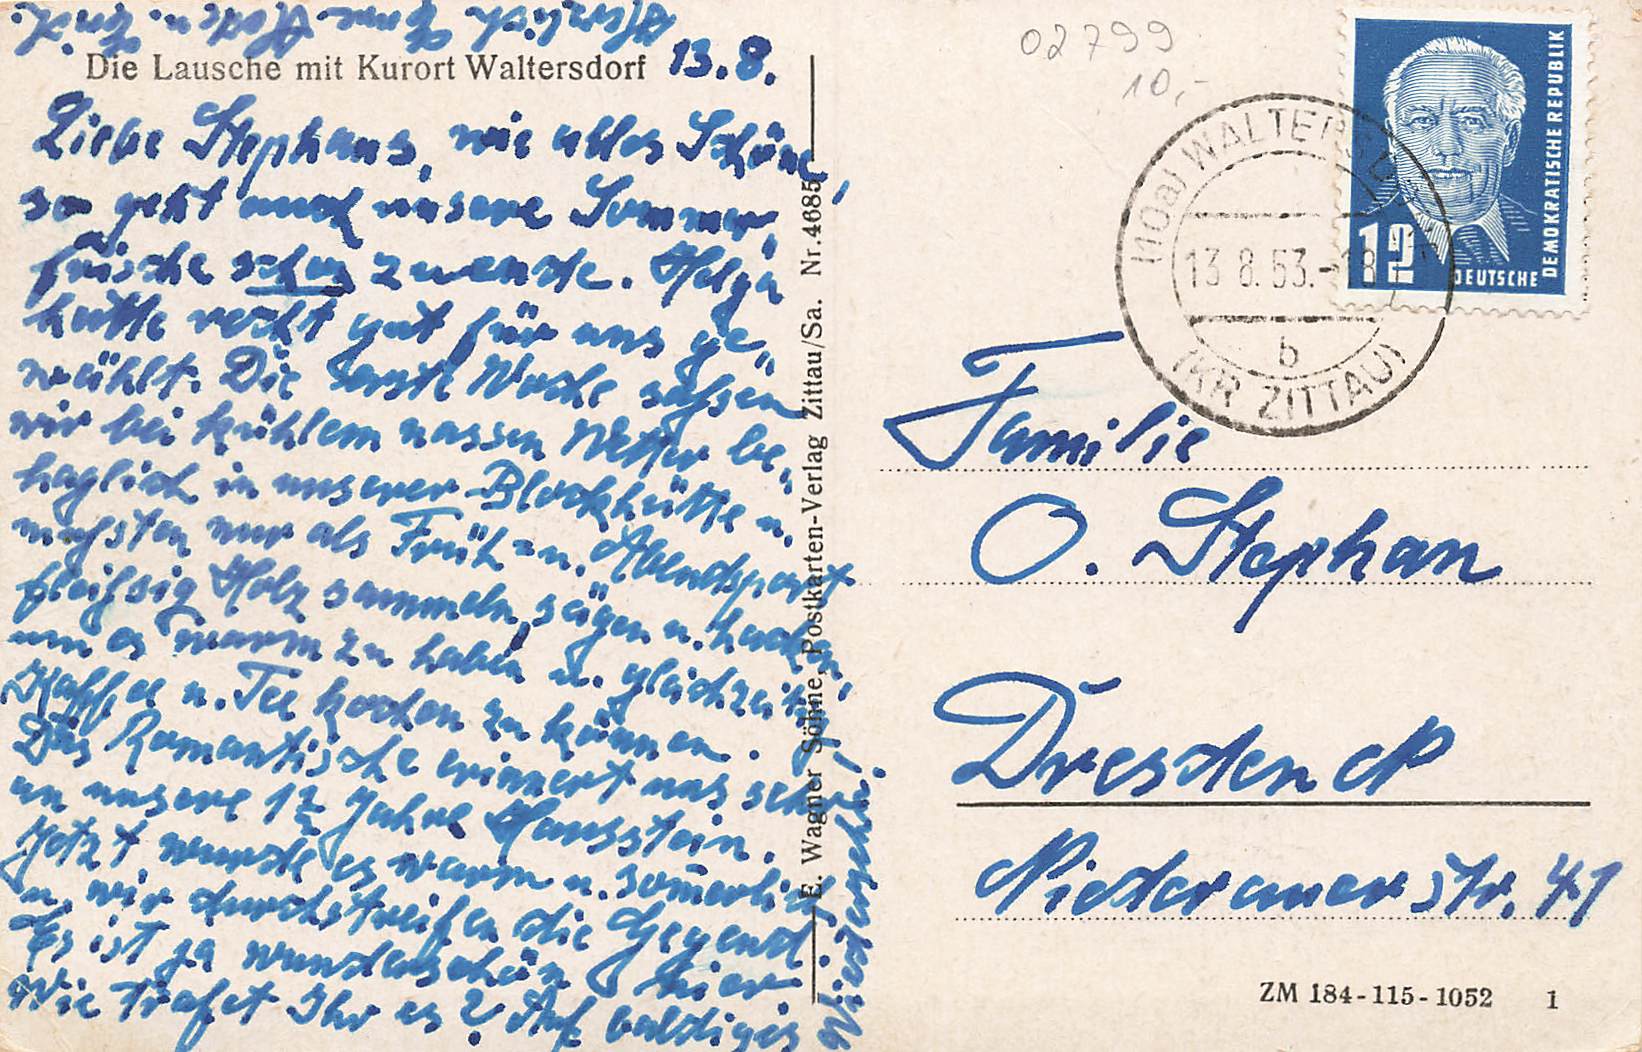 Die Lausche mit Kurort Waltersdorf 13.8.
Liebe Stephans, wie alles Schöne,
so geht auch unsere Sommer,,
frische schon zu ende. Helga
hatte recht gut für uns ge,,
wählt. Die erste Woche sassen
wir bei kühlem nassen Wetter be,,
haglich in unserer Blockhütte u.
mussten nur als Früh= u. Abendsport
fleissig Holz sammeln, sägen u. hacken,
um es warm zu haben u. gleichzeitig
Kaffee u. Tee kochen zu können.
Das Romantische erinnert uns sehr
an unsere 12 Jahre Hausstein.
Jetzt wurde es warm u. somerlich
u. wir durchstreifen die Gegend.
Es ist ja wunderschön hier.
Wie traft Ihr es? Auf baldiges
Wiedersehn.
Herzlich Eure
E. Wagner Söhne, Postkarten-Verlag Zittau/Sa. Nr. 4685
02799
10,-
(10a) WALTERSDORF
13.8.53.-18
b
(KR ZITTAU)
12
DEUTSCHE
DEMOKRATISCHE REPUBLIK
Familie
O. Stephan
Dresden A
Niederauer Str. 41
ZM 184-115-1052 1